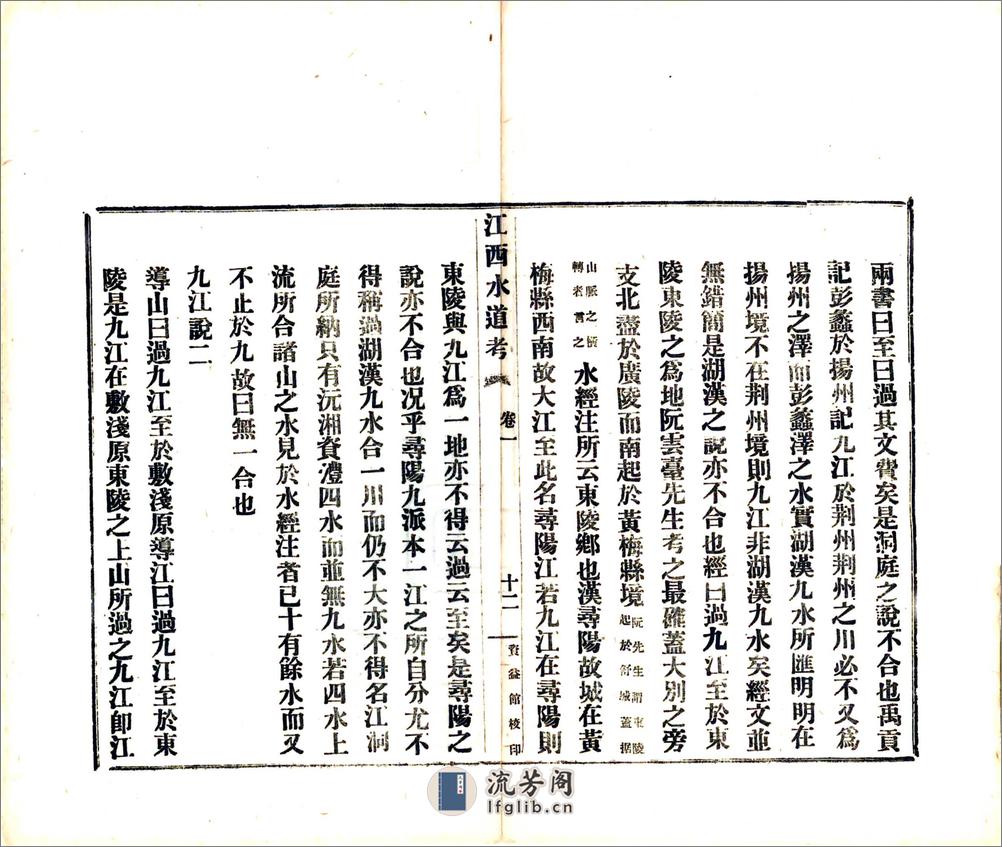 兩書曰至曰過其文費矣是洞庭之說不合也禹貢
記彭蠡於揚州記九江於荆州荆州之川必不又爲
揚州之澤而彭蠡澤之水實湖漢九水所匯明明在
揚州境不在荆州境則九江非湖漢九水矣經文並
無錯簡是湖漢之說亦不合也經曰過九江至於東
陵東陵之爲地阮雲臺先生考之最確蓋大別之旁
支北盡於廣陵而南起於黃梅縣境阮先生謂東陵
起於舒城蓋据
山脈之橫
轉者言之水經注所云東陵鄉也漢尋陽故城在黃
梅縣西南故大江至此名尋陽江若九江在尋陽則
江西水道考 卷一 十二 資益館校印
東陵與九江爲一地亦不得云過云至矣是尋陽之
說亦不合也况乎尋陽九派本一江之所自分尤不
得稱過湖漢九水合一川而仍不大亦不得名江洞
庭所納只有沅湘資澧四水而並無九水若四水上
流所合諸山之水見於水經注者已十有餘水而又
不止於九故曰無一合也
九江說二
導山曰過九江至於敷淺原導江曰過九江至於東
陵是九江在敷淺原東陵之上山所過之九江卽江
流芳阁
lfglib.cn